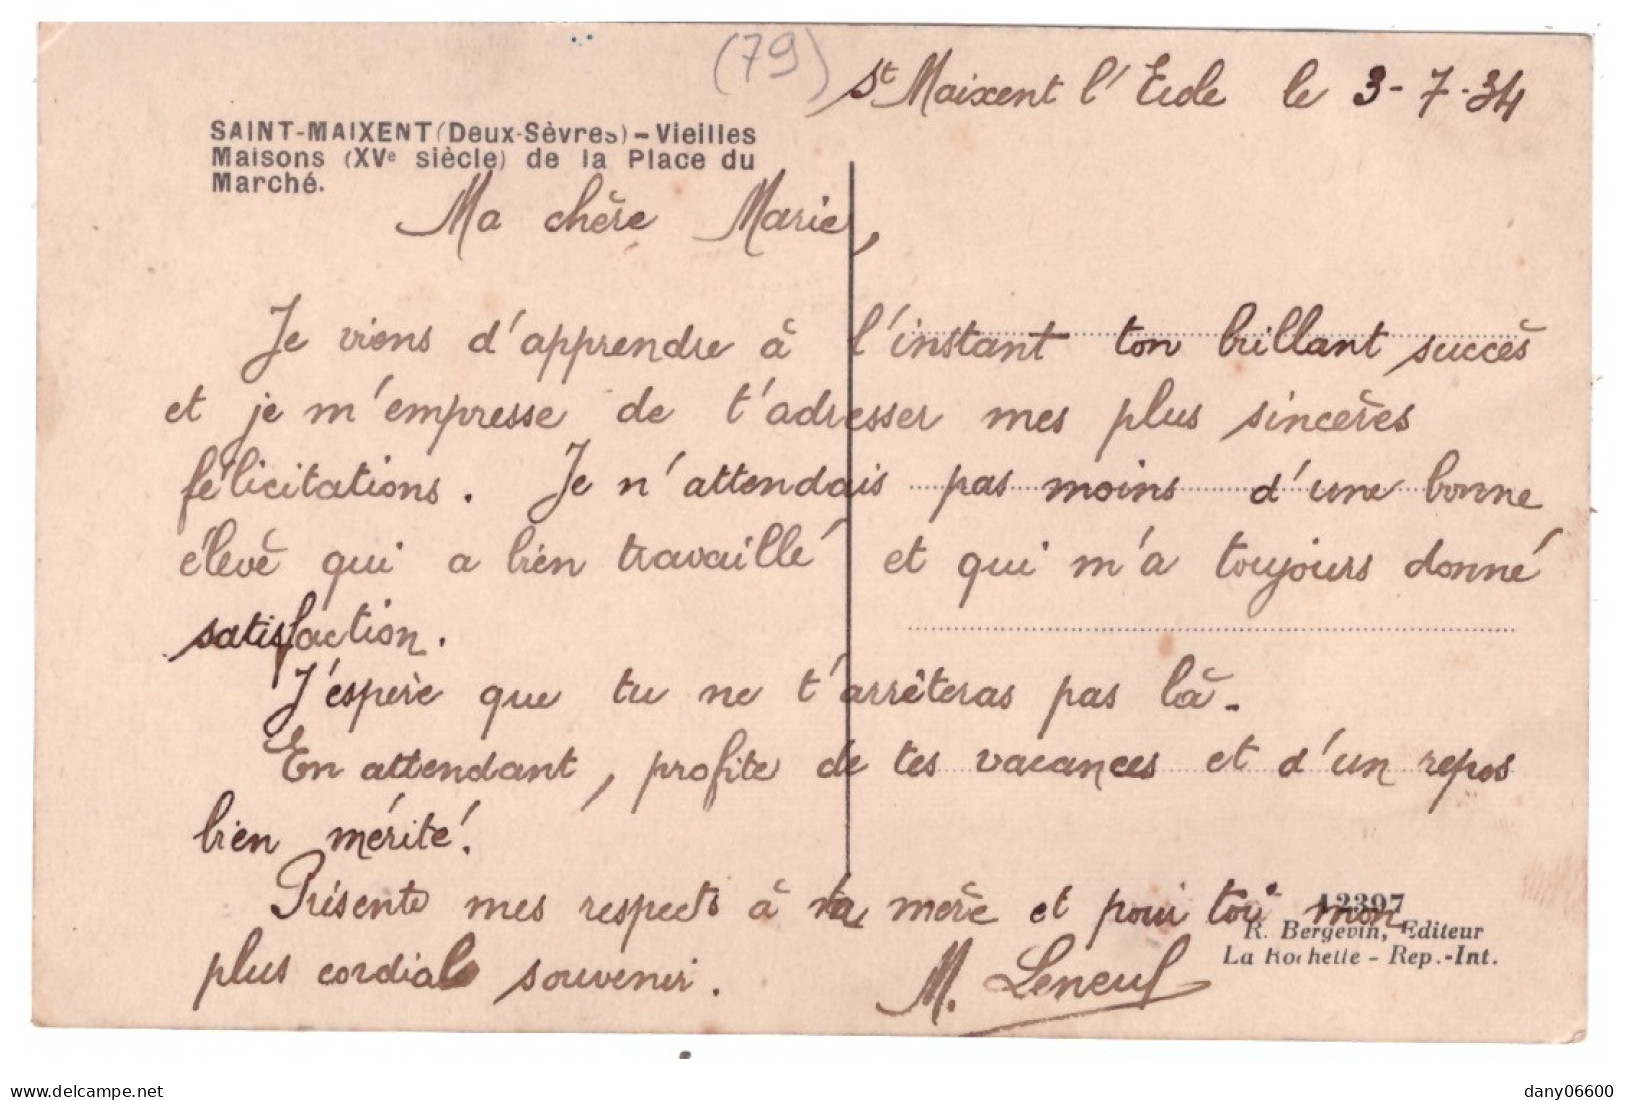 (79)
St Maixent l'Ecole le 3-7-34
SAINT-MAIXENT (Deux-Sèvres) - Vieilles
Maisons (XVe siècle) de la Place du
Marché.
Ma chère Marie,
Je viens d'apprendre à l'instant ton brillant succès
et je m'empresse de t'adresser mes plus sincères
félicitations. Je n'attendais pas moins d'une bonne
élève qui a bien travaillé et qui m'a toujours donné
satisfaction.
J'espère que tu ne t'arrêteras pas là.
En attendant, profite de tes vacances et d'un repos
bien mérité!
Présente mes respects à ta mère et pour toi mon
plus cordial souvenir.
M. Leneuf
12397
R. Bergevin, Editeur
La Rochelle - Rep.-Int.
www.delcampe.net
dany06600